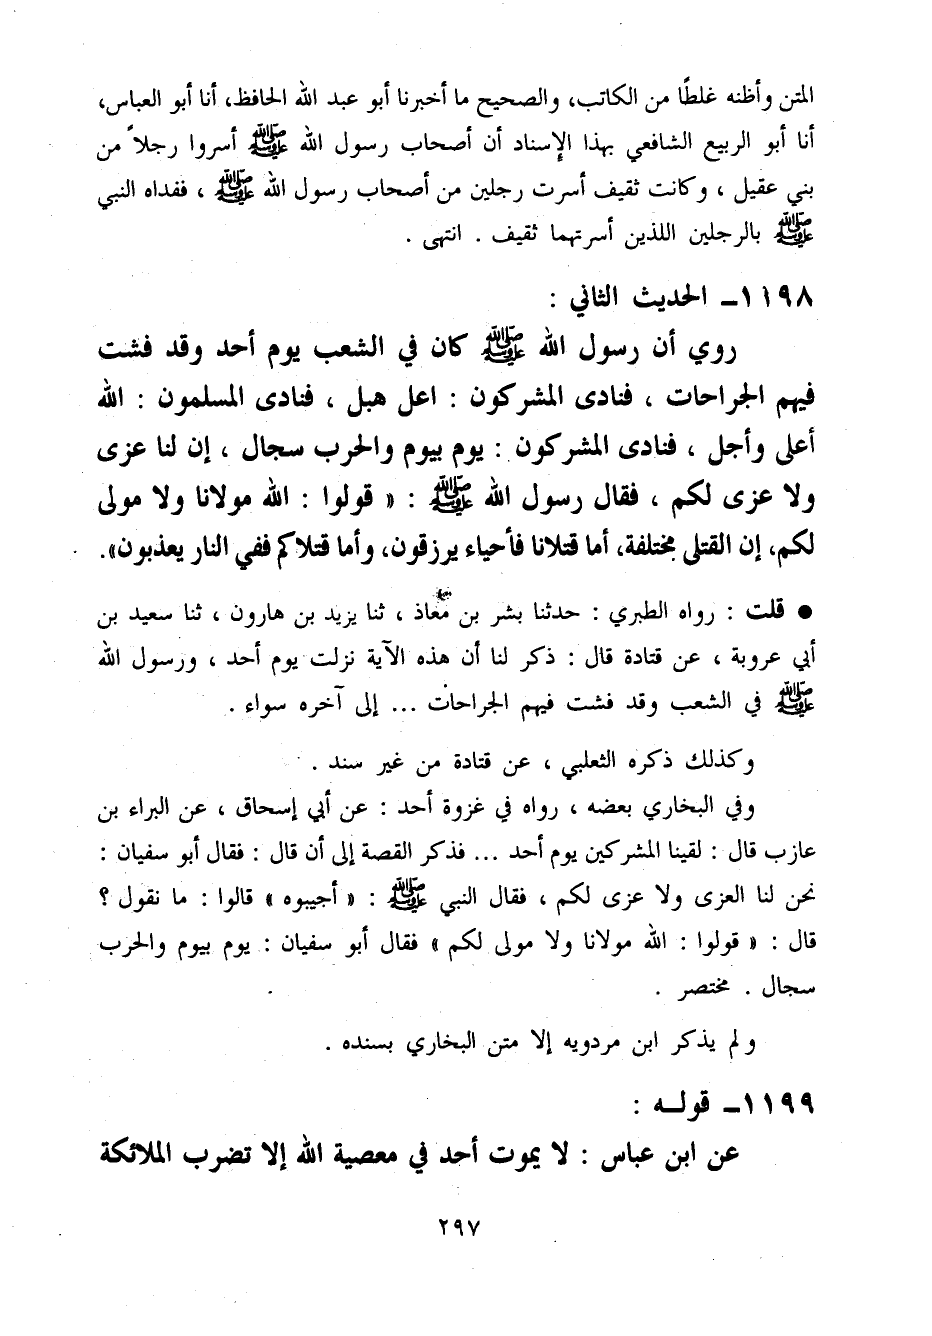 المتن وأظنه غلطًا من الكاتب، والصحيح ما أخبرنا أبو عبد الله الحافظ، أنا أبو العباس،
أنا أبو الربيع الشافعي بهذا الإسناد أن أصحاب رسول الله ﷺ أسروا رجلاً من
بني عقيل ، وكانت ثقيف أسرت رجلين من أصحاب رسول الله ﷺ ، ففداه النبي
ﷺ بالرجلين اللذين أسرتهما ثقيف . انتهى .
١١٩٨ـ الحديث الثاني :
روي أن رسول الله ﷺ كان في الشعب يوم أحد وقد فشت
فيهم الجراحات ، فنادى المشركون : اعل هبل ، فنادى المسلمون : الله
أعلى وأجل ، فنادى المشركون : يوم بيوم والحرب سجال ، إن لنا عزى
ولا عزى لكم ، فقال رسول الله ﷺ : « قولوا : الله مولانا ولا مولى
لكم، إن القتلى مختلفة، أما قتلانا فأحياء يرزقون، وأما قتلاكم ففي النار يعذبون».
● قلت : رواه الطبري : حدثنا بشر بن معاذ ، ثنا يزيد بن هارون ، ثنا سعيد بن
أبي عروبة ، عن قتادة قال : ذكر لنا أن هذه الآية نزلت يوم أحد ، ورسول الله
ﷺ في الشعب وقد فشت فيهم الجراحات ... إلى آخره سواء .
وكذلك ذكره الثعلبي ، عن قتادة من غير سند .
وفي البخاري بعضه ، رواه في غزوة أحد : عن أبي إسحاق ، عن البراء بن
عازب قال : لقينا المشركين يوم أحد ... فذكر القصة إلى أن قال : فقال أبو سفيان :
نحن لنا العزى ولا عزى لكم ، فقال النبي ﷺ : « أجيبوه » قالوا : ما نقول ؟
قال : « قولوا : الله مولانا ولا مولى لكم » فقال أبو سفيان : يوم بيوم والحرب
سجال . مختصر .
ولم يذكر ابن مردويه إلا متن البخاري بسنده .
١١٩٩ـ قوله :
عن ابن عباس : لا يموت أحد في معصية الله إلا تضرب الملائكة
٢٩٧